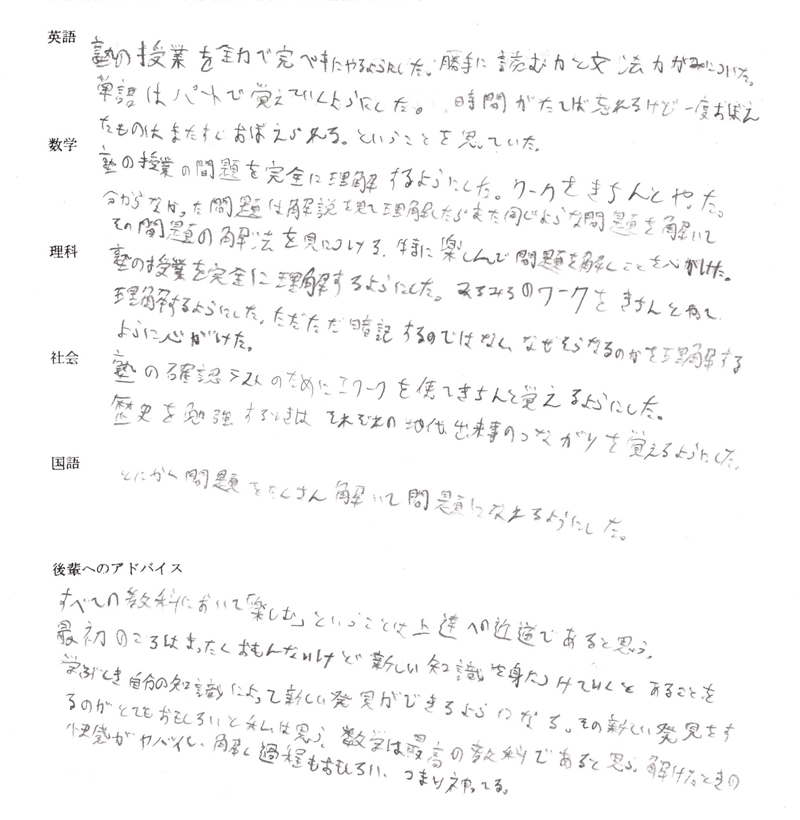 英語
塾の授業を全力で完ペキにやるようにした。勝手に読む力と文法力がみについた。
単語はパートで覚えていくようにした。時間がたてば忘れるけど一度おぼえ
たものはまたすぐおぼえられる。ということを思っていた。
数学
塾の授業の問題を完全に理解するようにした。ワークをきちんとやった。
分からなかった問題は解説を見て理解したらまた同じような問題を解いて
その問題の解法を身につける。特に楽しんで問題を解くことを心がけた。
理科
塾の授業を完全に理解するようにした。みるみるのワークをきちんとやって
理解するようにした。ただただ暗記するのではなく、なぜそうなるのかを理解する
ように心がけた。
社会
塾の確認テストのためにエワークを使ってきちんと覚えるようにした。
歴史を勉強するときはそれぞれの時代、出来事のつながりを覚えるようにした。
国語
とにかく問題をたくさん解いて問題になれるようにした。
後輩へのアドバイス
すべての教科において「楽しむ」ということは上達への近道であると思う。
最初のころはまったくおもんないけど新しい知識を身につけていくとあることを
学ぶとき自分の知識によって新しい発見ができるようになる。その新しい発見をす
るのがとてもおもしろいと私は思う。数学は最高の教科であると思う。解けたときの
快感がヤバイし、解く過程もおもしろい。つまり神ってる。